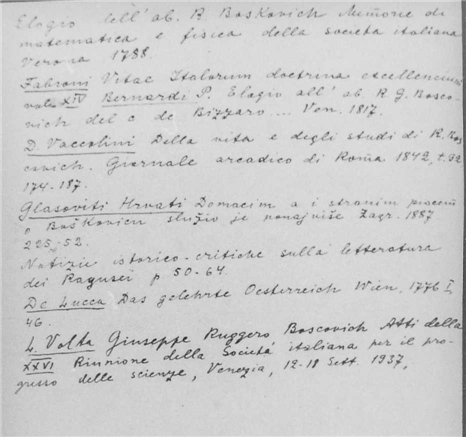 Elogio dell' ab. R Boskovich Memorie di
matematica e fisica della societa italiana
Verona 1788.
Fabroni Vitae Italorum doctrina excellentium
vol. XIV Bernardi P. Elogio all' ab R G. Bosco-
vich del c de Bizzaro ... Ven. 1817.
D Vaccolini Della vita e degli studi di R. Bos
covich. Giornale arcadico di Roma 1842, t. 92
174-187.
Glasoviti Hrvati Domacim a i stranim
o Boškovicu služio je ponajviše Zagr. 1887
225-52.
Notizie istorico-critiche sulla letteratura
dei Ragusei p 50-64.
De Lucca Das gelehrte Oesterreich Wien, 1776 I,
46.
L. Volta Giuseppe Ruggero Boscovich Atti della
XXVI Riunione della Societá italiana per il pro-
gresso delle scienze, Venezia, 12-18 Sett. 1937,